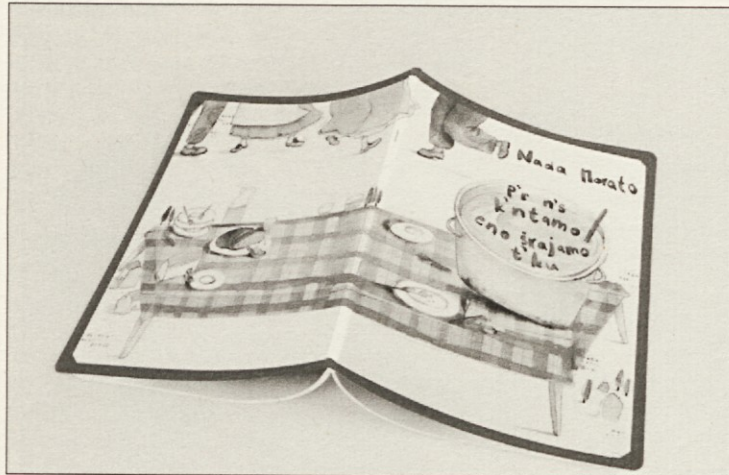 Nada Morato
P'r n's
k'ntamo
eno šrajamo
t'ku